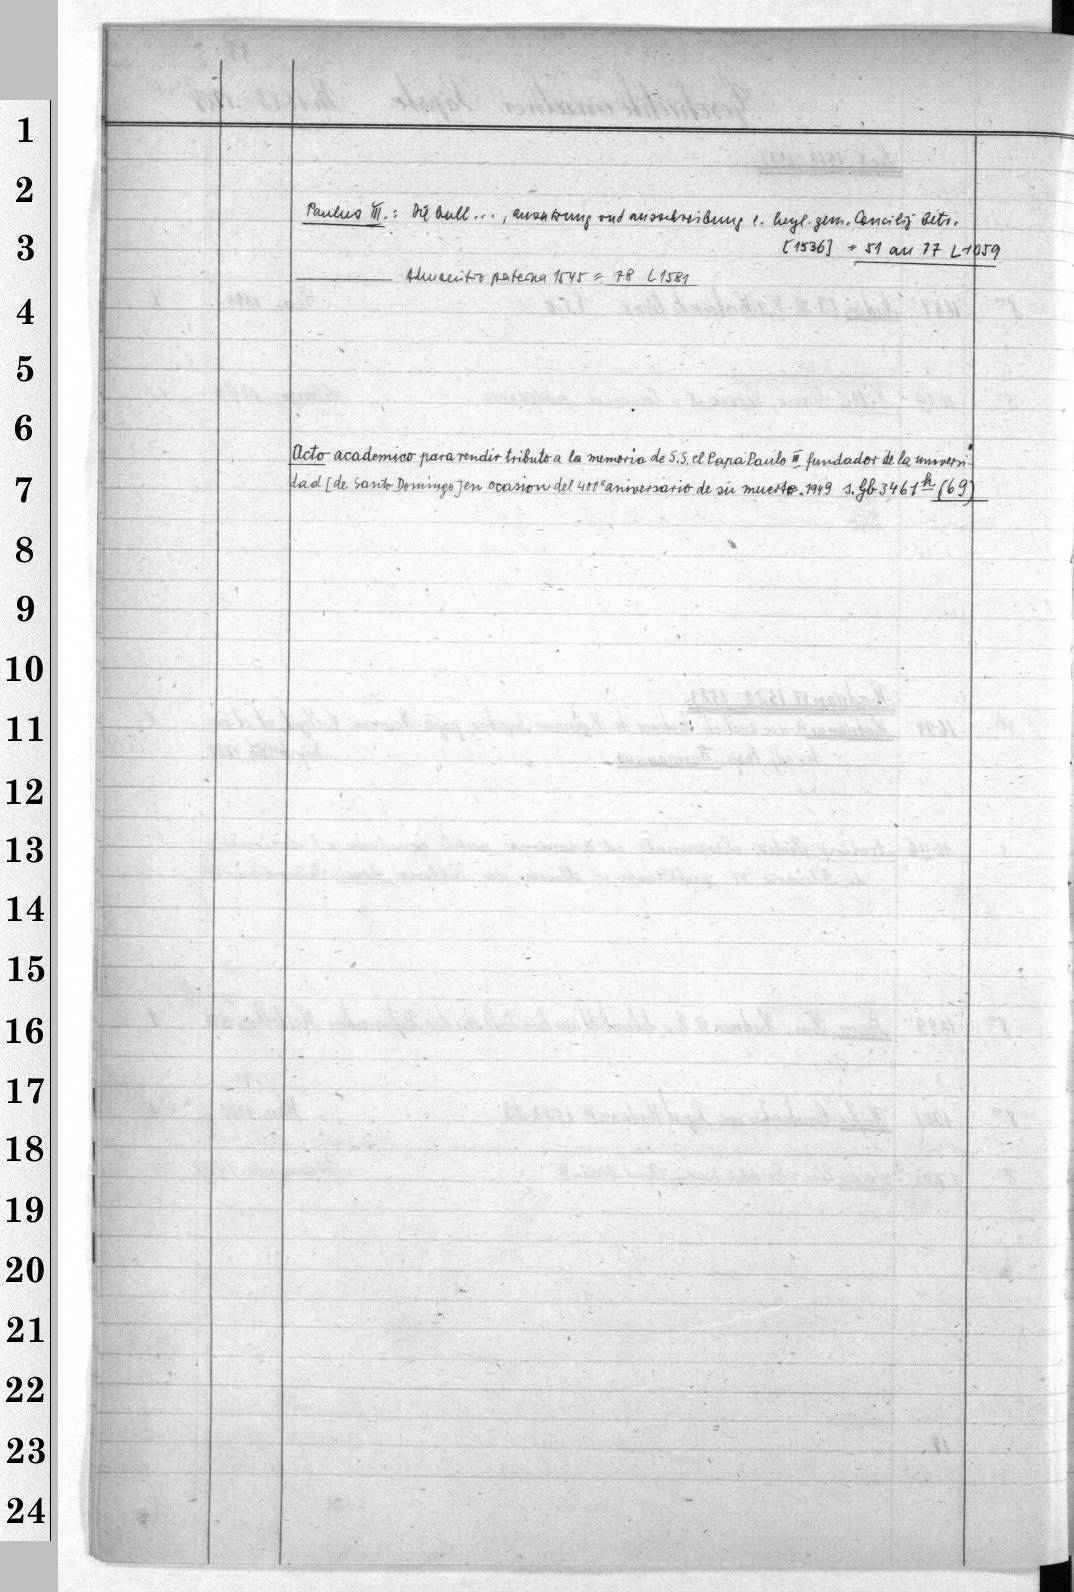 1
2
Paulus III.: Die bull..., ansatzung und ausschreibung e. heyl. gem. Concilij betr.
3
[1536] = 51 an 77 L 1059
Admonitio paterna 1545 = 78 L 1581
4
5
6
Acto academico para rendir tributo a la memoria de S.S. el Papa Paulo III fundador de la universi-
7
dad [de Santo Domingo] en ocasion del 400º aniversario de su muerte. 1949 s. Gb 3461 h (69)
8
9
10
11
12
13
14
15
16
17
18
19
20
21
22
23
24